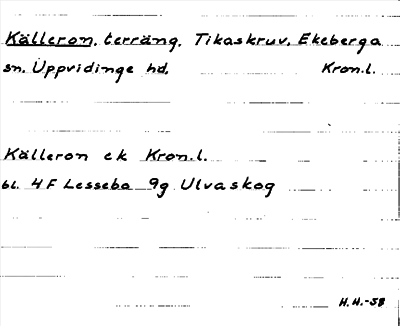 Källeron, terräng, Tikaskruv, Ekeberga
sn, Uppvidinge hd, Kron.l.
Källeron ek Kron.l.
bl. 4F Lessebo 9g Ulvaskog
H.H.-58